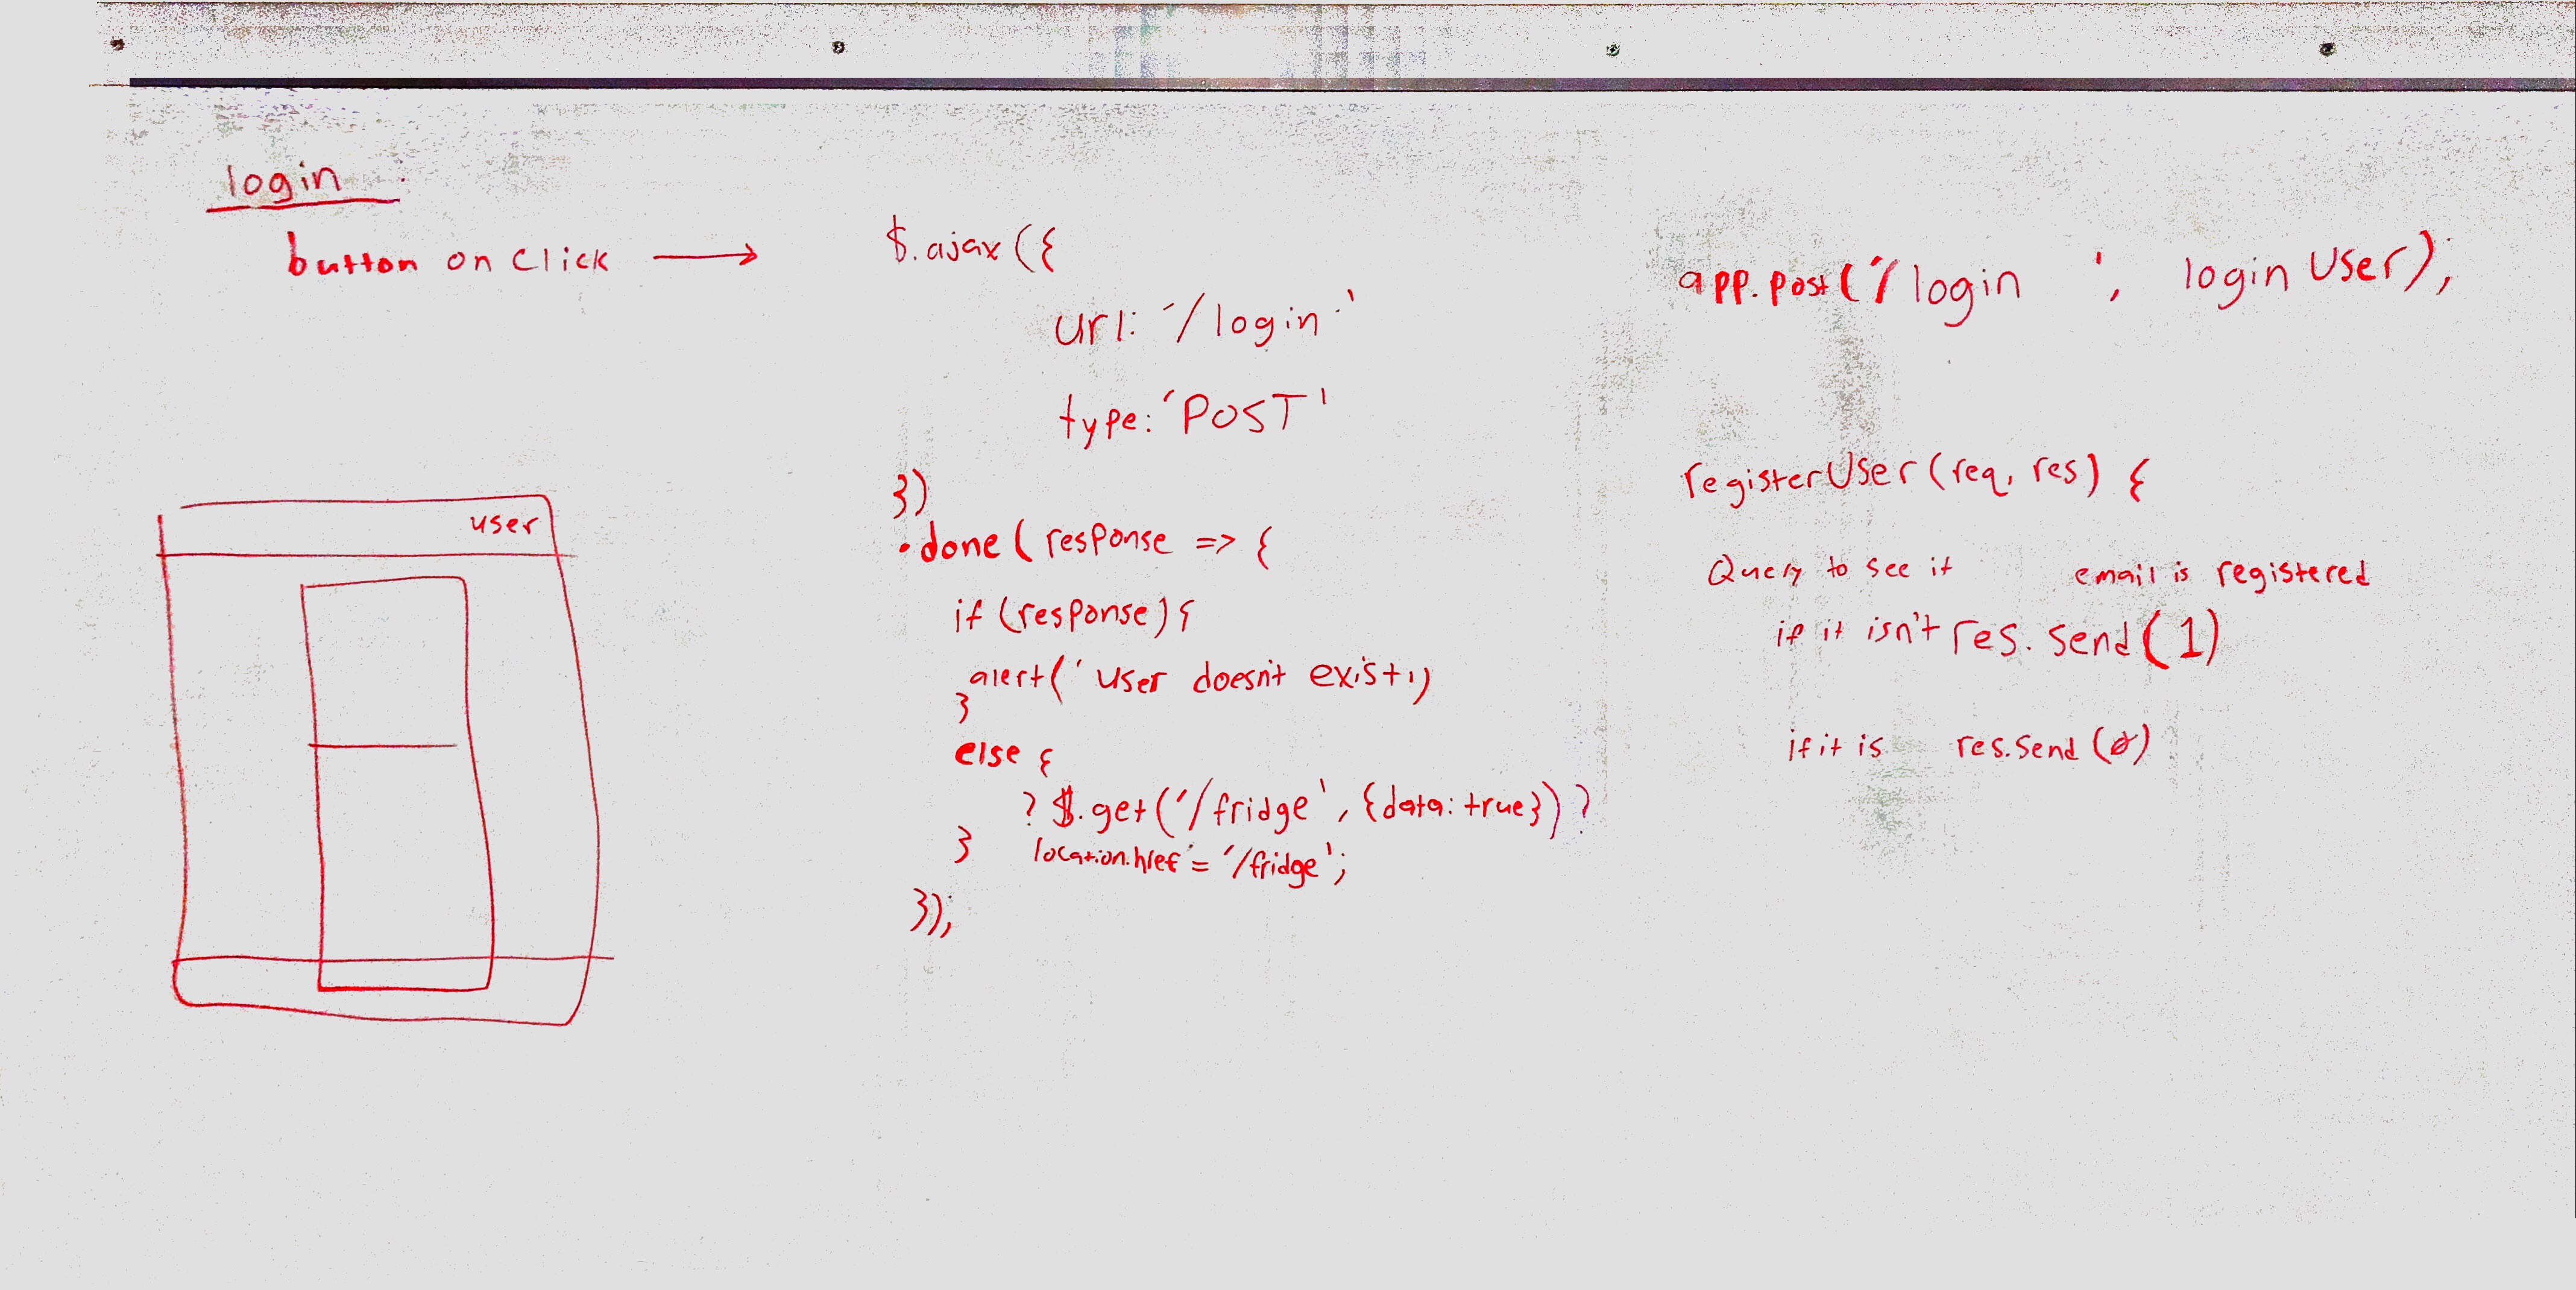 login
button on click →
user
$.ajax({
url: '/login'
type: 'POST'
})
.done(response => {
if (response) {
alert('user doesn't exist')
}
else {
? $.get('/fridge', {data: true}) ?
} location.href = '/fridge';
});
app.post('/login ', loginUser);
registerUser(req, res) {
Query to see if email is registered
if it isn't res.send(1)
if it is res.send(0)